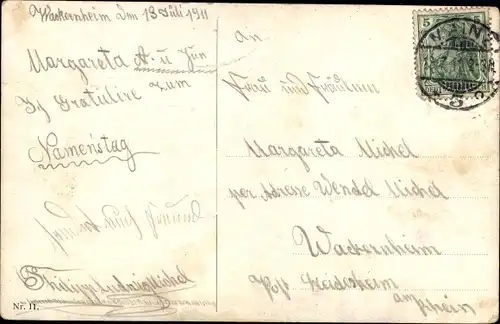 Wackernheim Den 13 Juli 1911
Margareta A. u Jun
Ich Gratulire zum
Namenstag
Philipp Ludwig Michel
Nr. 11.
An
Frau und Fräulein
Margareta Michel
per Adresse Wendel Michel
Wackernheim
Post Heidesheim
am Rhein
5